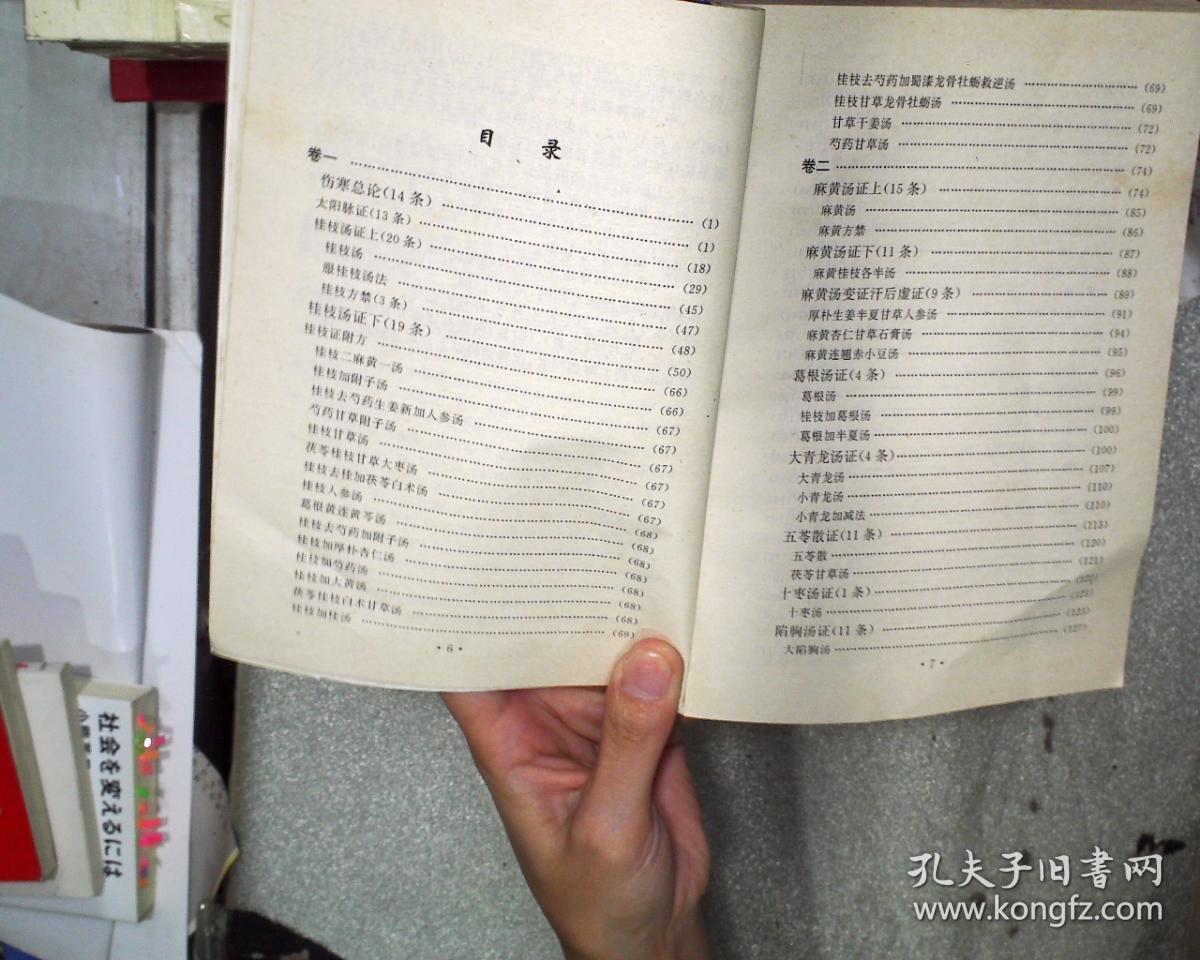 目 录
卷一 ……………………(1)
伤寒总论(14条) ……………………(1)
太阳脉证(13条) ……………………(18)
桂枝汤证上(20条) ……………………(29)
桂枝汤 ……………………(45)
服桂枝汤法 ……………………(47)
桂枝方禁(3条) ……………………(48)
桂枝汤证下(19条) ……………………(50)
桂枝证附方 ……………………(66)
桂枝二麻黄一汤 ……………………(66)
桂枝加附子汤 ……………………(67)
桂枝去芍药生姜新加人参汤 ……………………(67)
芍药甘草附子汤 ……………………(67)
桂枝甘草汤 ……………………(67)
茯苓桂枝甘草大枣汤 ……………………(67)
桂枝去桂加茯苓白术汤 ……………………(67)
桂枝人参汤 ……………………(68)
葛根黄连黄芩汤 ……………………(68)
桂枝去芍药加附子汤 ……………………(68)
桂枝加厚朴杏仁汤 ……………………(68)
桂枝加芍药汤 ……………………(68)
桂枝加大黄汤 ……………………(68)
茯苓桂枝白术甘草汤 ……………………(68)
桂枝加桂汤 ……………………(69)
·6·
桂枝去芍药加蜀漆龙骨牡蛎救逆汤 ……………………(69)
桂枝甘草龙骨牡蛎汤 ……………………(69)
甘草干姜汤 ……………………(72)
芍药甘草汤 ……………………(72)
卷二 ……………………(74)
麻黄汤证上(15条) ……………………(74)
麻黄汤 ……………………(85)
麻黄方禁 ……………………(86)
麻黄汤证下(11条) ……………………(87)
麻黄桂枝各半汤 ……………………(88)
麻黄汤变证汗后虚证(9条) ……………………(89)
厚朴生姜半夏甘草人参汤 ……………………(91)
麻黄杏仁甘草石膏汤 ……………………(94)
麻黄连翘赤小豆汤 ……………………(95)
葛根汤证(4条) ……………………(96)
葛根汤 ……………………(99)
桂枝加葛根汤 ……………………(99)
葛根加半夏汤 ……………………(100)
大青龙汤证(4条) ……………………(100)
大青龙汤 ……………………(107)
小青龙汤 ……………………(110)
小青龙加减法 ……………………(110)
五苓散证(11条) ……………………(113)
五苓散 ……………………(120)
茯苓甘草汤 ……………………
十枣汤证(1条) ……………………
十枣汤 ……………………(125)
陷胸汤证(11条) ……………………(127)
大陷胸汤 ……………………
·7·
社会を変えるには
孔夫子旧书网
www.kongfz.com